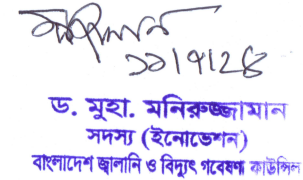 ১১/৭/২৪
ড. মুহা. মনিরুজ্জামান
সদস্য (ইনোভেশন)
বাংলাদেশ জ্বালানি ও বিদ্যুৎ গবেষণা কাউন্সিল